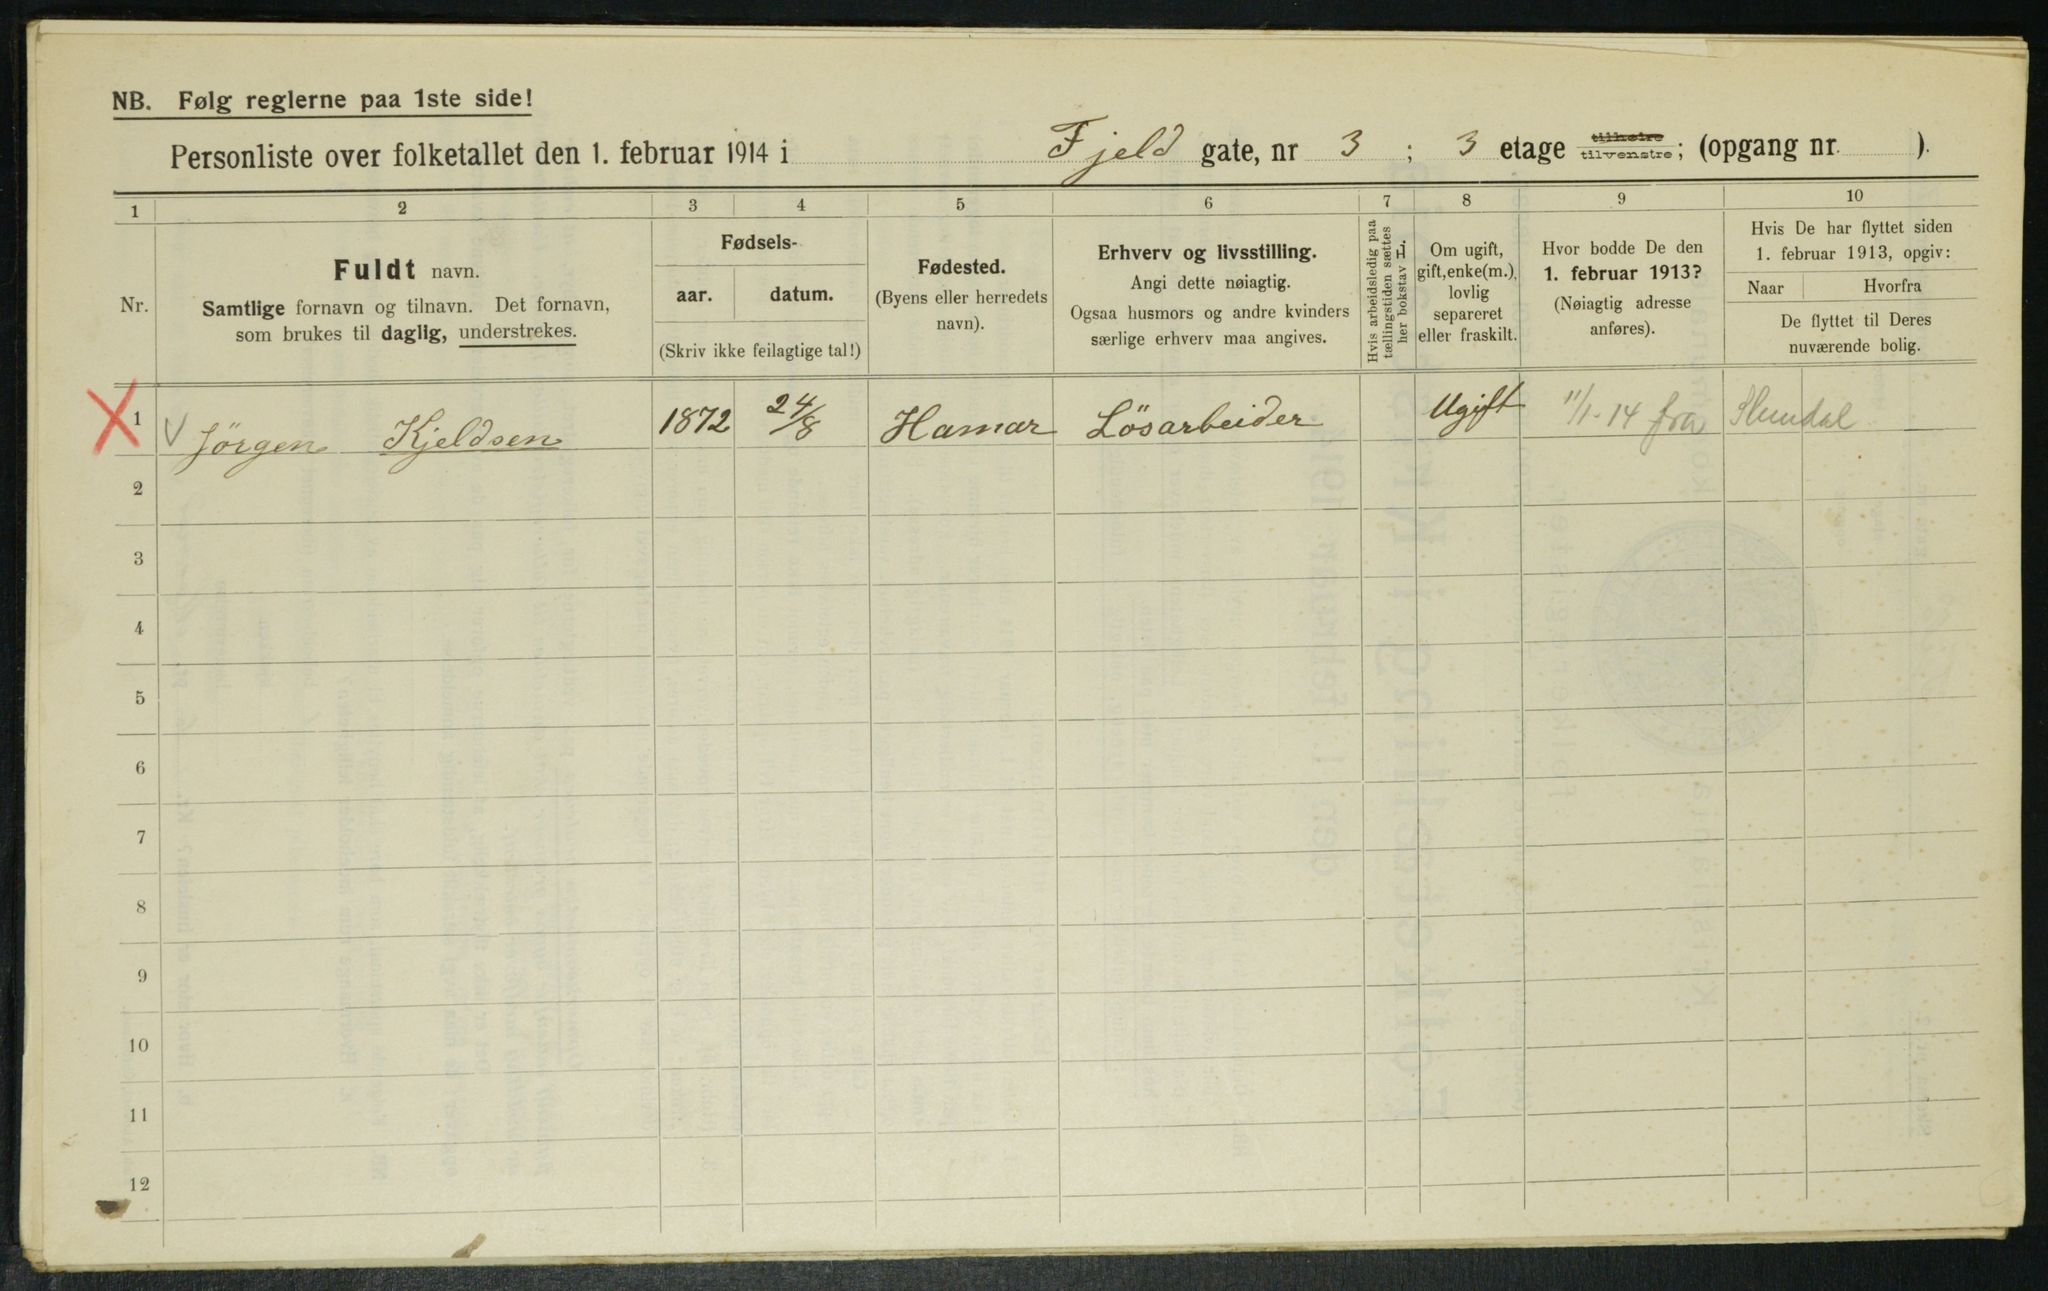 NB. Følg reglerne paa 1ste side!
Personliste over folketallet den 1. februar 1914 i Fjeld gate, nr 3 ; 3 etage tilhøire tilvenstre; (opgang nr. ).
1 2 3 4 5 6 7 8 9 10
Nr.
Fuldt navn.
Samtlige fornavn og tilnavn. Det fornavn,
som brukes til daglig, understrekes.
Fødsels-
aar. datum.
(Skriv ikke feilagtige tal!)
Fødested.
(Byens eller herredets
navn).
Erhverv og livsstilling.
Angi dette nøiagtig.
Ogsaa husmors og andre kvinders
særlige erhverv maa angives.
Hvis arbeidsledig paa
tællingstiden sættes
her bokstav L.
Om ugift,
gift, enke(m.),
lovlig
separeret
eller fraskilt.
Hvor bodde De den
1. februar 1913?
(Nøiagtig adresse
anføres).
Hvis De har flyttet siden
1. februar 1913, opgiv:
Naar Hvorfra
De flyttet til Deres
nuværende bolig.
1 Jørgen Kjeldsen 1872 24/8 Hamar Løsarbeider Ugift 11/1-14 fra
2
3
4
5
6
7
8
9
10
11
12